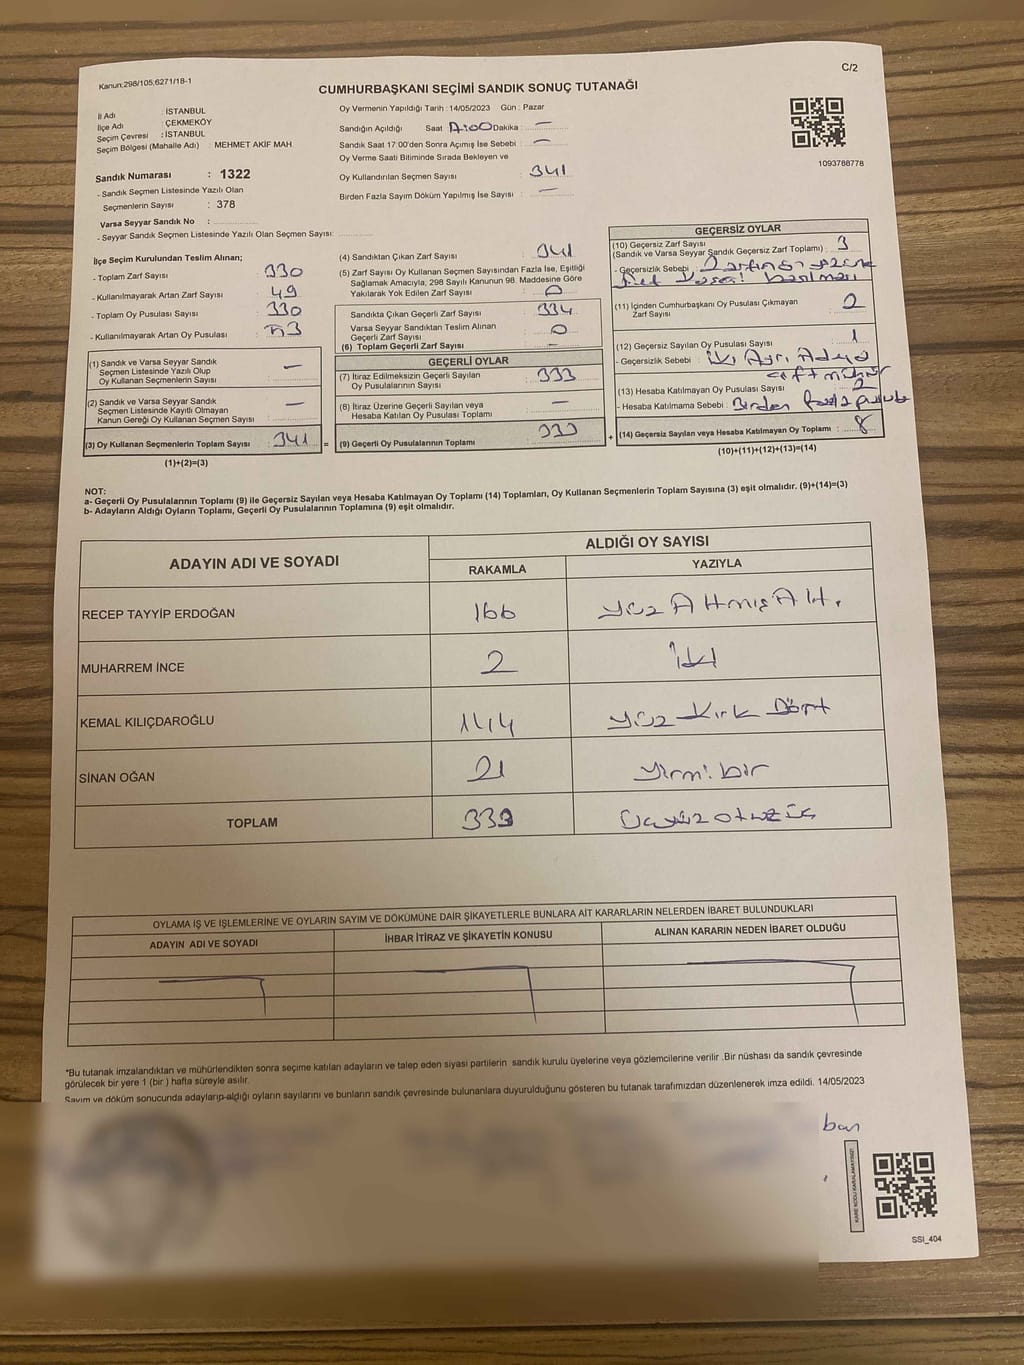 Kanun:298/105;6271/18-1
C/2
CUMHURBAŞKANI SEÇİMİ SANDIK SONUÇ TUTANAĞI
İl Adı : İSTANBUL
İlçe Adı : ÇEKMEKÖY
Seçim Çevresi : İSTANBUL
Seçim Bölgesi (Mahalle Adı) : MEHMET AKİF MAH
Sandık Numarası : 1322
- Sandık Seçmen Listesinde Yazılı Olan
Seçmenlerin Sayısı : 378
Varsa Seyyar Sandık No :
- Seyyar Sandık Seçmen Listesinde Yazılı Olan Seçmen Sayısı:
Oy Vermenin Yapıldığı Tarih : 14/05/2023 Gün : Pazar
Sandığın Açıldığı Saat Dakika : —
Sandık Saat 17:00'den Sonra Açımış İse Sebebi : —
Oy Verme Saati Bitiminde Sırada Bekleyen ve
Oy Kullandırılan Seçmen Sayısı : 341
Birden Fazla Sayım Döküm Yapılmış İse Sayısı : —
1093788778
İlçe Seçim Kurulundan Teslim Alınan;
- Toplam Zarf Sayısı : 330
- Kullanılmayarak Artan Zarf Sayısı : 49
- Toplam Oy Pusulası : 330
- Kullanılmayarak Artan Oy Pusulası :
(1) Sandık ve Varsa Seyyar Sandık
Seçmen Listesinde Yazılı Olup
Oy Kullanan Seçmenlerin Sayısı : —
(2) Sandık ve Varsa Seyyar Sandık
Seçmen Listesinde Kayıtlı Olmayan
Kanun Gereği Oy Kullanan Seçmen Sayısı : —
(3) Oy Kullanan Seçmenlerin Toplam Sayısı : 341 =
(1)+(2)=(3)
(4) Sandıktan Çıkan Zarf Sayısı : 341
(5) Zarf Sayısı Oy Kullanan Seçmen Sayısından Fazla İse, Eşitliği
Sağlamak Amacıyla, 298 Sayılı Kanunun 98. Maddesine Göre
Yakılarak Yok Edilen Zarf Sayısı : 0
Sandıkta Çıkan Geçerli Zarf Sayısı : 334
Varsa Seyyar Sandıktan Teslim Alınan
Geçerli Zarf Sayısı : 0
(6) Toplam Geçerli Zarf Sayısı : —
GEÇERLİ OYLAR
(7) İtiraz Edilmeksizin Geçerli Sayılan
Oy Pusulalarının Sayısı : 333
(8) İtiraz Üzerine Geçerli Sayılan veya
Hesaba Katılan Oy Pusulası Toplamı : —
(9) Geçerli Oy Pusulalarının Toplamı : 333 +
GEÇERSİZ OYLAR
(10) Geçersiz Zarf Sayısı : 3
(Sandık ve Varsa Seyyar Sandık Geçersiz Zarf Toplamı) :
- Geçersizlik Sebebi : Zarfın üzerine
basılması
(11) İçinden Cumhurbaşkanı Oy Pusulası Çıkmayan
Zarf Sayısı : 2
(12) Geçersiz Sayılan Oy Pusulası Sayısı : 1
- Geçersizlik Sebebi : İki Ayrı Adaya
çift mühür
(13) Hesaba Katılmayan Oy Pusulası Sayısı : 2
- Hesaba Katılmama Sebebi : Birden fazla pusula
(14) Geçersiz Sayılan veya Hesaba Katılmayan Oy Toplamı : 8
(10)+(11)+(12)+(13)=(14)
NOT:
a- Geçerli Oy Pusulalarının Toplamı (9) ile Geçersiz Sayılan veya Hesaba Katılmayan Oy Toplamı (14) Toplamları, Oy Kullanan Seçmenlerin Toplam Sayısına (3) eşit olmalıdır. (9)+(14)=(3)
b- Adayların Aldığı Oyların Toplamı, Geçerli Oy Pusulalarının Toplamına (9) eşit olmalıdır.
ADAYIN ADI VE SOYADI
ALDIĞI OY SAYISI
RAKAMLA YAZIYLA
RECEP TAYYİP ERDOĞAN 166 Yüz Altmış Altı
MUHARREM İNCE 2 İki
KEMAL KILIÇDAROĞLU 144 Yüz Kırk Dört
SİNAN OĞAN 21 Yirmi bir
TOPLAM 333 Üçyüz otuz üç
OYLAMA İŞ VE İŞLEMLERİNE VE OYLARIN SAYIM VE DÖKÜMÜNE DAİR ŞİKAYETLERLE BUNLARA AİT KARARLARIN NELERDEN İBARET BULUNDUKLARI
ADAYIN ADI VE SOYADI İHBAR İTİRAZ VE ŞİKAYETİN KONUSU ALINAN KARARIN NEDEN İBARET OLDUĞU
*Bu tutanak imzalandıktan ve mühürlendikten sonra seçime katılan adayların ve talep eden siyasi partilerin sandık kurulu üyelerine veya gözlemcilerine verilir .Bir nüshası da sandık çevresinde
görülecek bir yere 1 (bir ) hafta süreyle asılır.
Sayım ve döküm sonucunda adayların aldığı oyların sayılarını ve bunların sandık çevresinde bulunanlara duyurulduğunu gösteren bu tutanak tarafımızdan düzenlenerek imza edildi. 14/05/2023
ban
KARE KODU KARALAMAYINIZ!
SSI_404